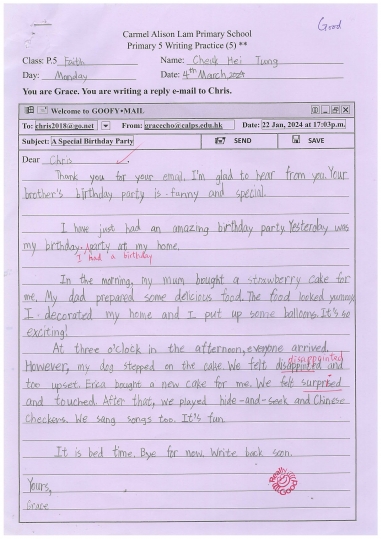 Good
Carmel Alison Lam Primary School
Primary 5 Writing Practice (5) **
Class: P.5 Faith Name: Cheuk Hei Tung
Day: Monday Date: 4th March, 2024
You are Grace. You are writing a reply e-mail to Chris.
Welcome to GOOFY•MAIL
To: chris2018@go.net From: gracecho@calps.edu.hk Date: 22 Jan, 2024 at 17:03p.m.
Subject: A Special Birthday Party SEND SAVE
Dear Chris
Thank you for your email. I'm glad to hear from you. Your
brother's birthday party is funny and special.
I have just had an amazing birthday party. Yesterday was
my birthday. party at my home.
I had a birthday
In the morning, my mum bought a strawberry cake for
me. My dad prepared some delicious food. The food looked yummy.
I decorated my home and I put up some balloons. It's so
exciting!
At three o'clock in the afternoon, everyone arrived.
disappointed
However, my dog stepped on the cake. We felt disappointed and
too upset. Erica bought a new cake for me. We felt surprised
and touched. After that, we played hide-and-seek and Chinese
Checkers. We sang songs too. It's fun
It is bed time. Bye for now. Write back soon.
Yours,
Grace
Really Good